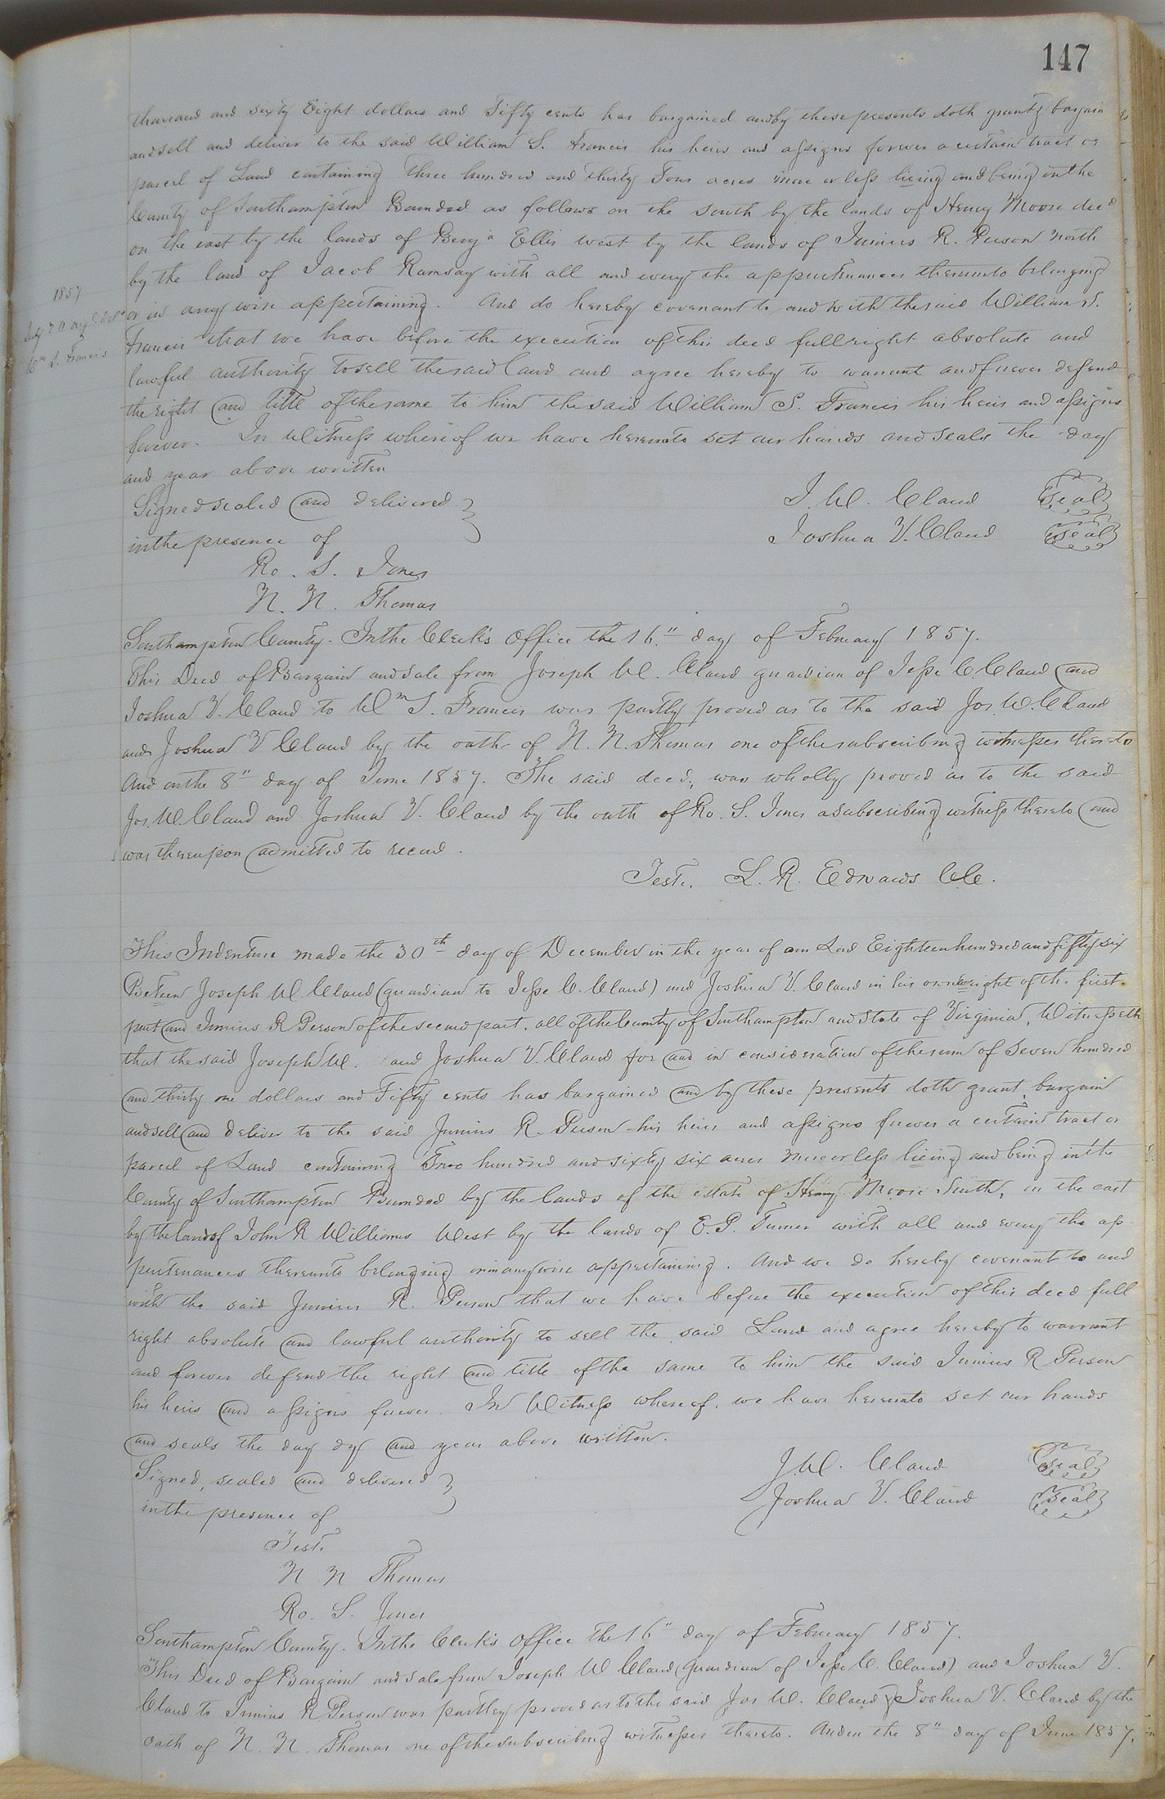 147
thousand and sixty Eight dollars and Fifty cents has bargained and by these presents doth grant bargain
and sell and deliver to the said William S. Francis his heirs and assigns forever a certain tract or
parcel of Land containing Three hundred and thirty Four acres more or less lieing and being in the
County of Southampton Bounded as follows on the South by the lands of Henry Moore decd
on the east by the lands of Benja Ellis west by the lands of Junius R. Person North
by the land of Jacob Ramsay with all and every the appurtenances thereunto belonging
1857
or in any wise appertaining. And do hereby covenant to and with the said William S.
Wm S. Francis
Francis that we have before the execution of this deed full right absolute and
lawful authority to sell the said land and agree hereby to warrant and forever defend
the right and title of the same to him the said William S. Francis his heirs and assigns
forever. In Witness whereof we have hereunto set our hands and seals the day
and year above written
Signed sealed and delivered
in the presence of
J. W. Claud Seal
Joshua V. Claud Seal
Ro. S. Jones
N. N. Thomas
Southampton County. In the Clerk's Office the 16" day of February 1857.
This Deed of Bargain and sale from Joseph W. Claud guardian of Jesse C Claud and
Joshua V. Claud to Wm S. Francis was partly proved as to the said Jos. W. Claud
and Joshua V Claud by the oath of N. N. Thomas one of the subscribing witnesses thereto
And on the 8" day of June 1857. The said deed, was wholly proved as to the said
Jos. W Claud and Joshua V. Claud by the oath of Ro. S. Jones a subscribing witness thereto and
was thereupon admitted to record.
Teste. L. R. Edwards CC.
This Indenture made the 30th day of December in the year of our Lord Eighteen hundred and fifty six
Between Joseph W Claud (guardian to Jesse C. Claud) and Joshua V. Claud in his own right of the first
part and Junius R Person of the second part, all of the County of Southampton and State of Virginia, Witnesseth
that the said Joseph W. and Joshua V. Claud for and in consideration of the sum of Seven hundred
and thirty one dollars and Fifty cents has bargained and by these presents doth grant, bargain
and sell and deliver to the said Junius R. Person his heirs and assigns forever a certain tract or
parcel of Land containing Two hundred and sixty six acres more or less lieing and being in the
County of Southampton Bounded by the lands of the estate of Henry Moore South, on the east
by the lands of John R Williams West by the lands of E. P. Turner with all and every the ap-
purtenances thereunto belonging or in any wise appertaining. And we do hereby covenant to and
with the said Junius R. Person that we have before the execution of this deed full
right absolute and lawful authority to sell the said Land and agree hereby to warrant
and forever defend the right and title of the same to him the said Junius R Person
his heirs and assigns forever. In Witness whereof, we have hereunto set our hands
and seals the day dy and year above written.
Signed, sealed and delivered
in the presence of
J. W. Claud Seal
Joshua V. Claud Seal
Test.
N N Thomas
Ro. S. Jones
Southampton County. In the Clerk's Office the 16" day of February 1857.
This Deed of Bargain and sale from Joseph W Claud (guardian of Jesse C. Claud) and Joshua V.
Claud to Junius R Person was partley proved as to the said Jos W. Claud & Joshua V. Claud by the
oath of N. N. Thomas one of the subscribing witnesses thereto. And on the 8" day of June 1857,